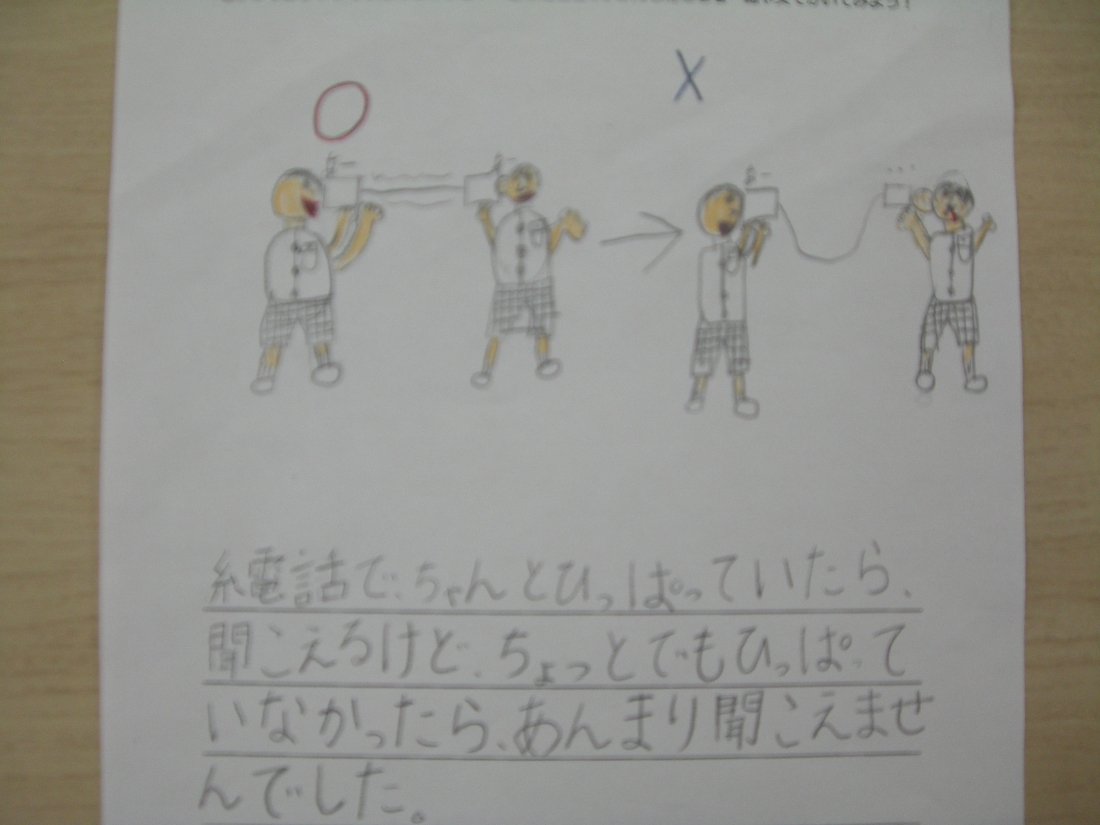 いてみよう!
○ X
糸電話で、ちゃんとひっぱっていたら、
聞こえるけど、ちょっとでもひっぱって
いなかったら、あんまり聞こえませ
んでした。